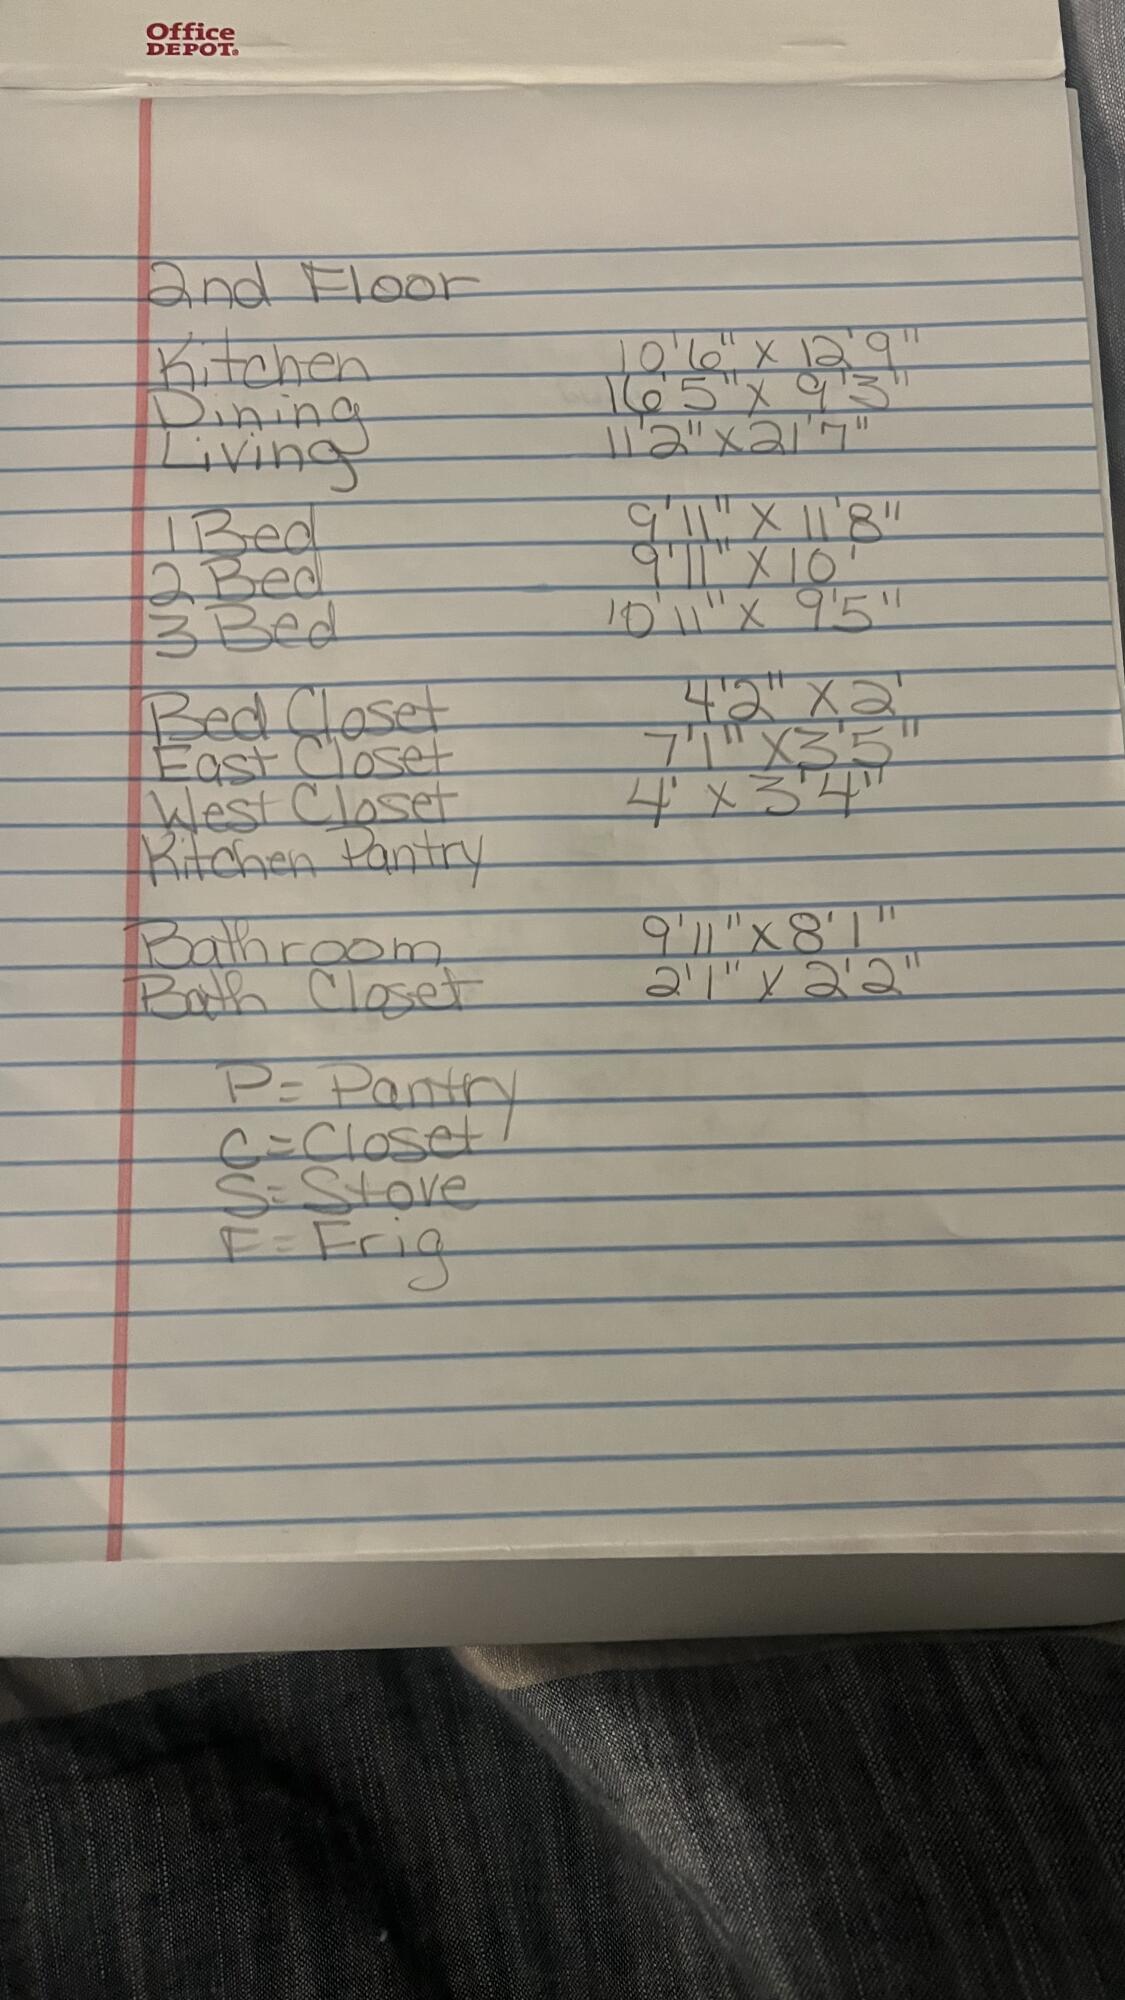 Office
DEPOT.
2nd Floor
Kitchen 10'6" x 12'9"
Dining 16'5" x 9'3"
Living 11'2" x 21'7"
1 Bed 9'11" x 11'8"
2 Bed 9'11" x 10'
3 Bed 10'11" x 9'5"
Bed Closet 4'2" x 2'
East Closet 7'1" x 3'5"
West Closet 4' x 3'4"
Kitchen Pantry
Bathroom 9'11" x 8'1"
Bath Closet 2'1" x 2'2"
P = Pantry
C = Closet
S = Stove
F = Frig